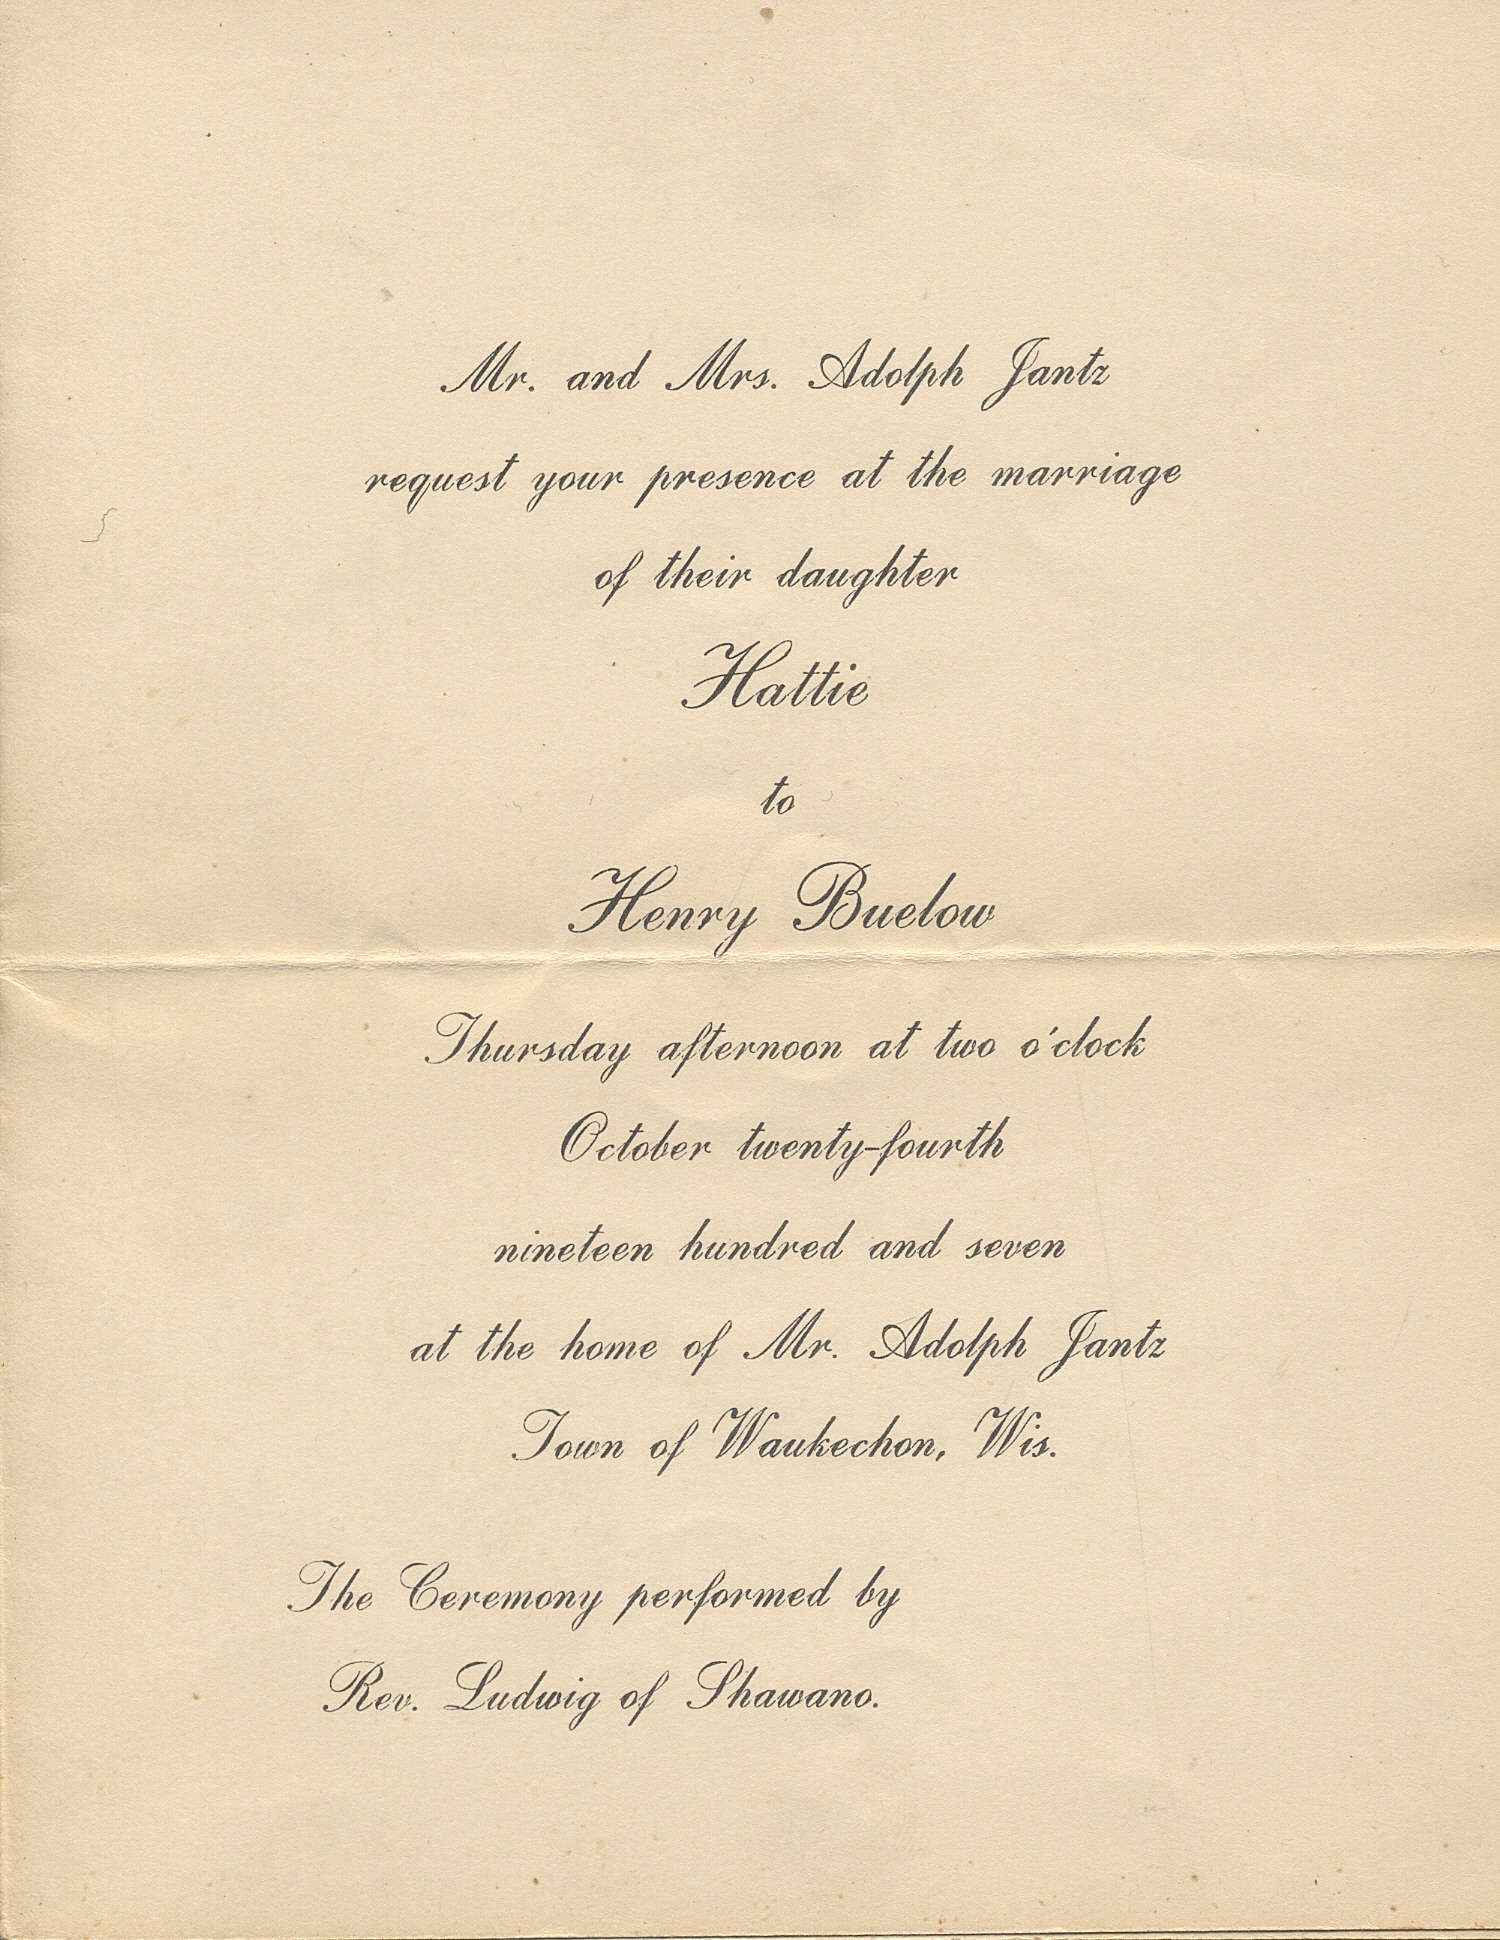 Mr. and Mrs. Adolph Jantz
request your presence at the marriage
of their daughter
Hattie
to
Henry Buelow
Thursday afternoon at two o'clock
October twenty-fourth
nineteen hundred and seven
at the home of Mr. Adolph Jantz
Town of Waukechon, Wis.
The Ceremony performed by
Rev. Ludwig of Shawano.